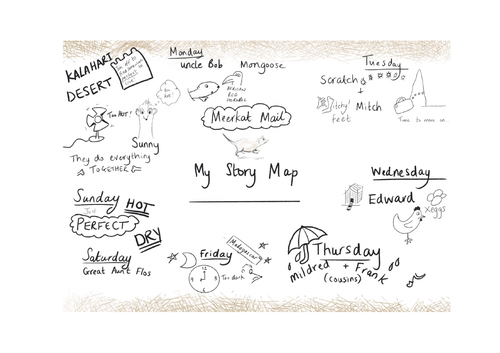 KALAHARI
DESERT
Too HOT!
Sunny
They do everything
TOGETHER
Monday
uncle Bob
Mongoose
Meerkat Mail
My Story Map
Tuesday
Scratch
+
Mitch
itchy
feet
Time to move on...
Wednesday
Edward
x eggs
Sunday
HOT
Just
PERFECT
DRY
Saturday
Great Aunt Flos
Friday
Madagascar
12
3
6
9
Too dark
Thursday
mildred + Frank
(cousins)